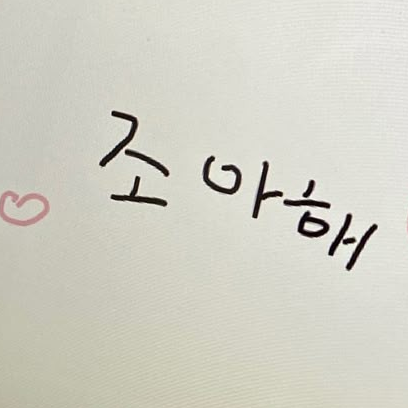 조아해